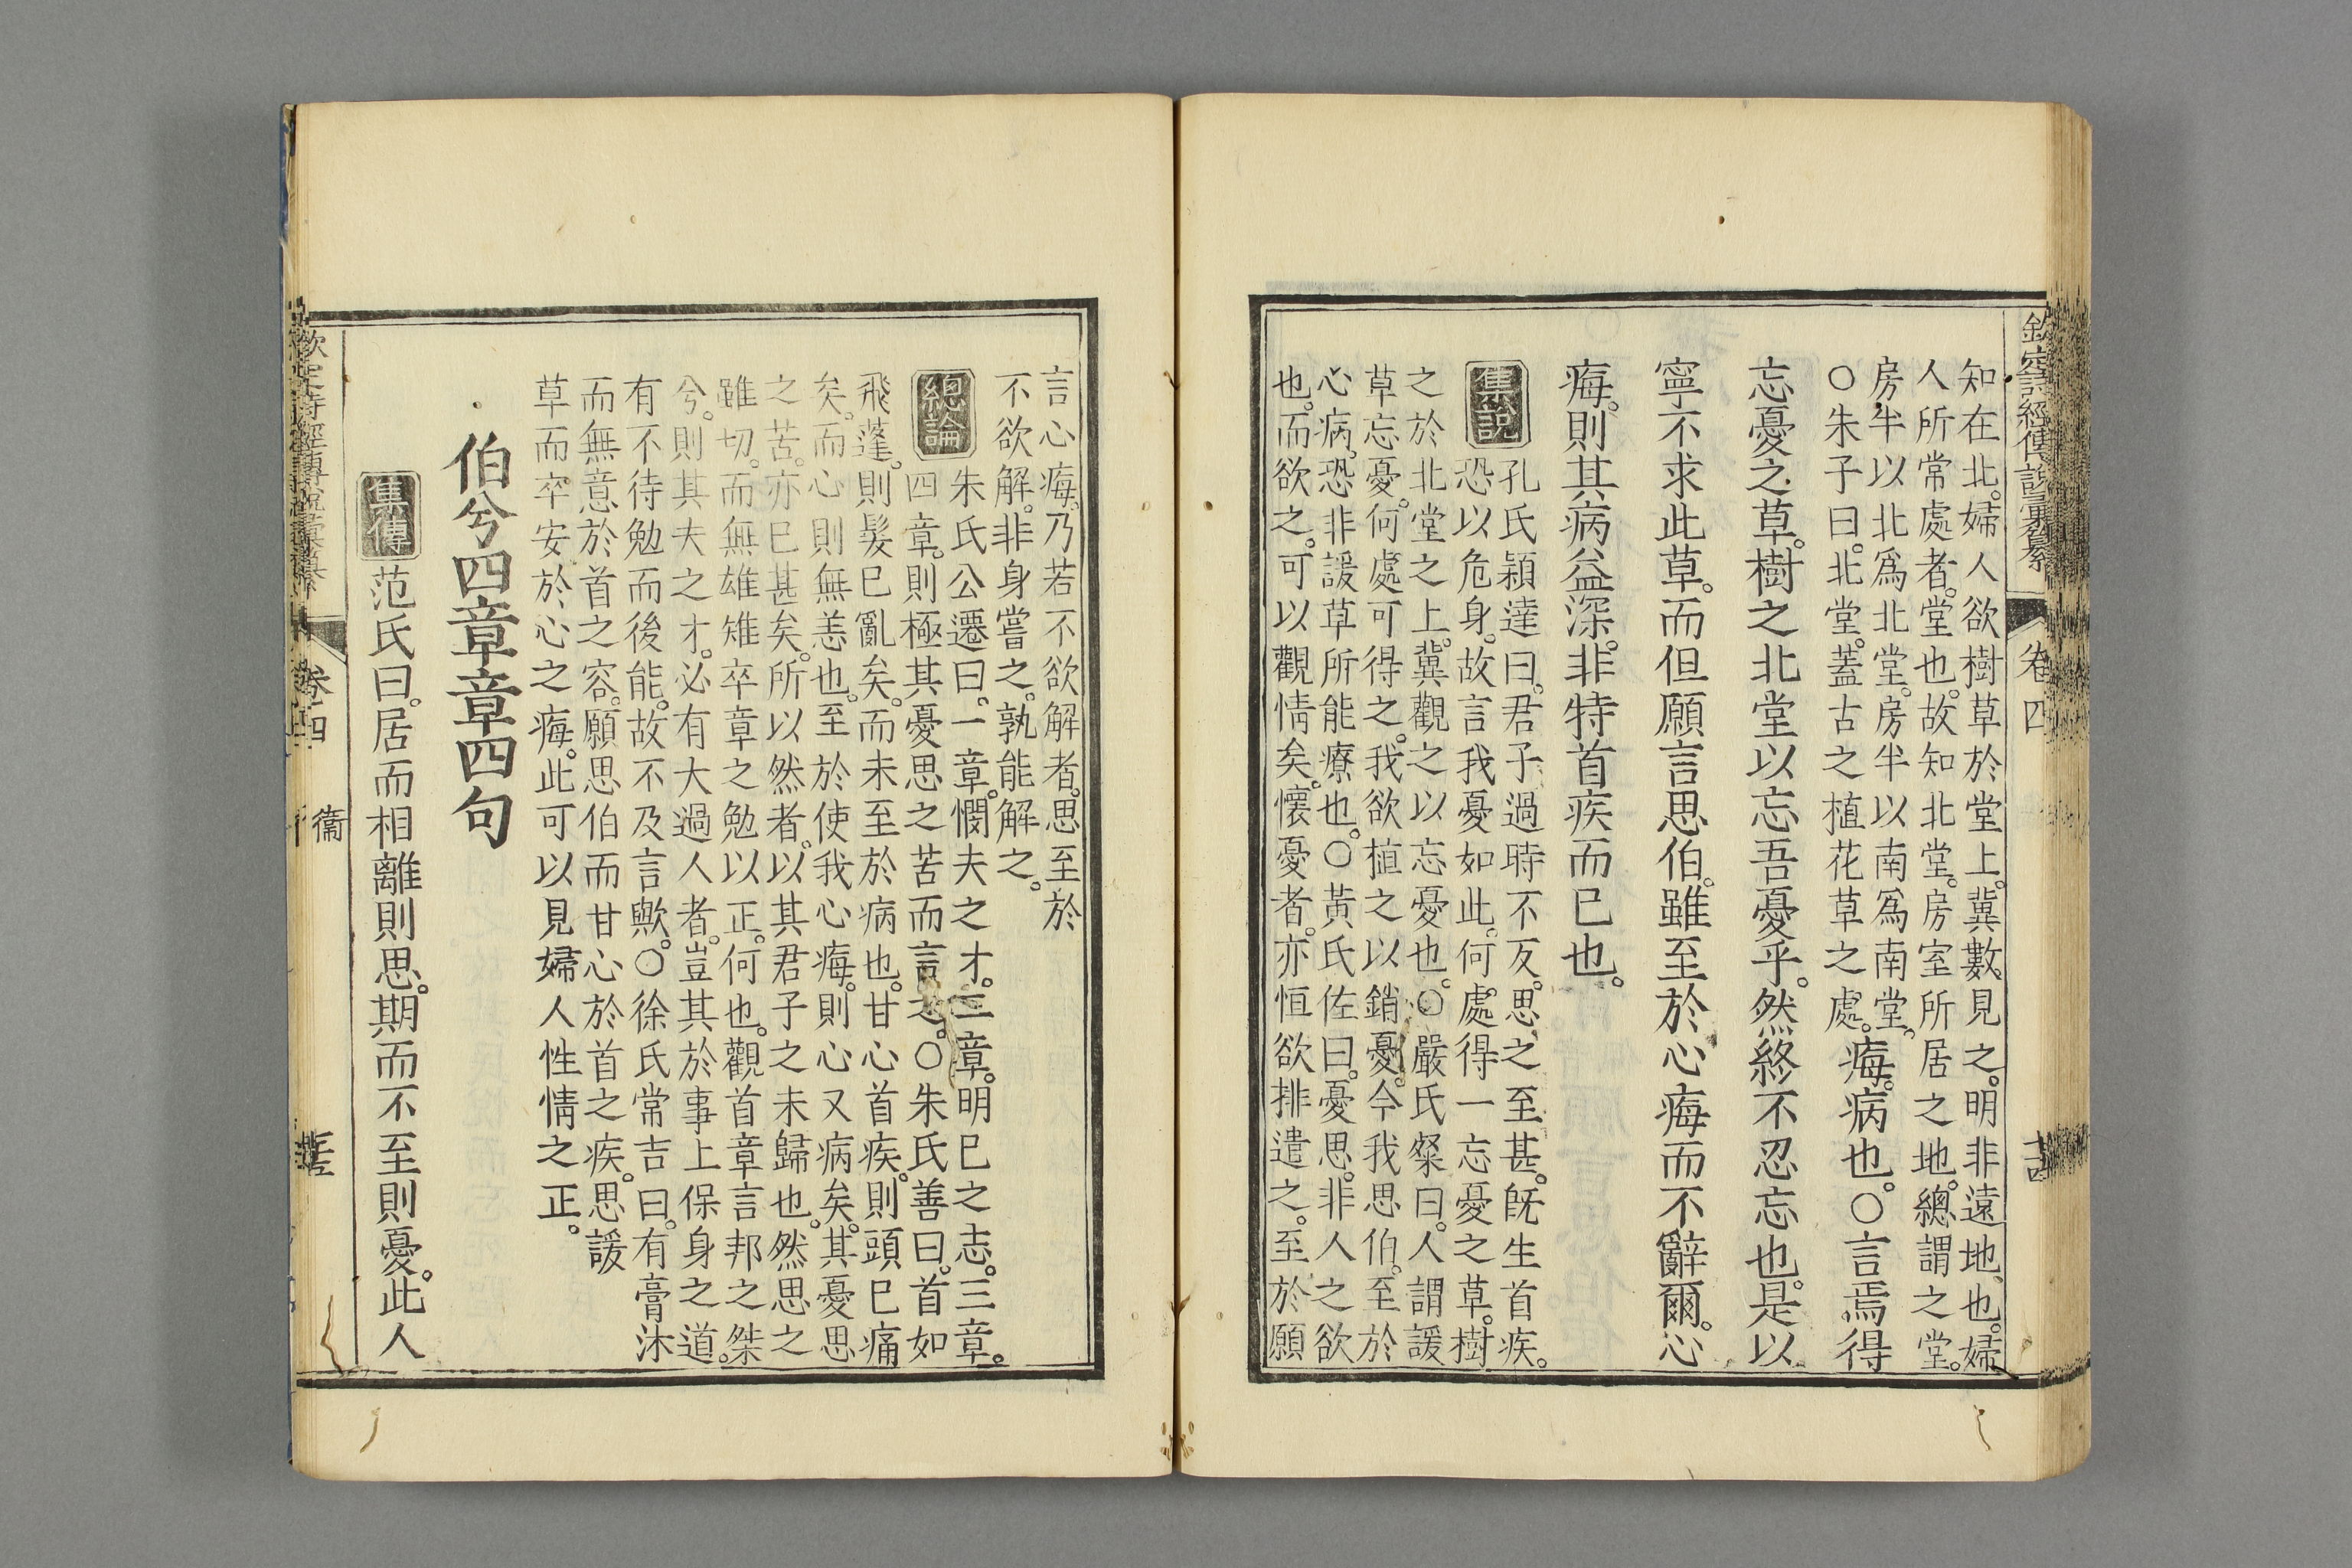 欽定詩經傳說彙纂 卷四 十四
知在北。婦人欲樹草於堂上。冀數見之。明非遠地也。婦
人所常處者。堂也。故知北堂。房室所居之地。總謂之堂。
房半以北爲北堂。房半以南爲南堂。
○朱子曰。北堂。蓋古之植花草之處。
痗。病也。○言焉得
忘憂之草。樹之北堂以忘吾憂乎。然終不忍忘也。是以
寧不求此草。而但願言思伯。雖至於心痗而不辭爾。心
痗。則其病益深。非特首疾而已也。
集說
孔氏穎達曰。君子過時不反。思之至甚。旣生首疾。
恐以危身。故言我憂如此。何處得一忘憂之草。樹
之於北堂之上。冀觀之以忘憂也。○嚴氏粲曰。人謂諼
草忘憂。何處可得之。我欲植之以銷憂。今我思伯。至於
心病。恐非諼草所能療也。○黃氏佐曰。憂思。非人之欲
也。而欲之。可以觀情矣。懷憂者。亦恒欲排遣之。至於願
言心痗。乃若不欲解者。思至於
不欲解。非身嘗之。孰能解之。
總論
朱氏公遷曰。一章。憫夫之才。二章。明己之志。三章。
四章。則極其憂思之苦而言之。○朱氏善曰。首如
飛蓬。則髮已亂矣。而未至於病也。甘心首疾。則頭已痛
矣。而心則無恙也。至於使我心痗。則心又病矣。其憂思
之苦。亦已甚矣。所以然者。以其君子之未歸也。然思之
雖切。而無雄雉卒章之勉以正。何也。觀首章言邦之桀
兮。則其夫之才。必有大過人者。豈其於事上保身之道。
有不待勉而後能。故不及言歟。○徐氏常吉曰。有膏沐
而無意於首之容。願思伯而甘心於首之疾。思諼
草而卒安於心之痗。此可以見婦人性情之正。
伯兮四章章四句
集傳
范氏曰。居而相離則思。期而不至則憂。此人
欽定詩經傳說彙纂 卷四 衞